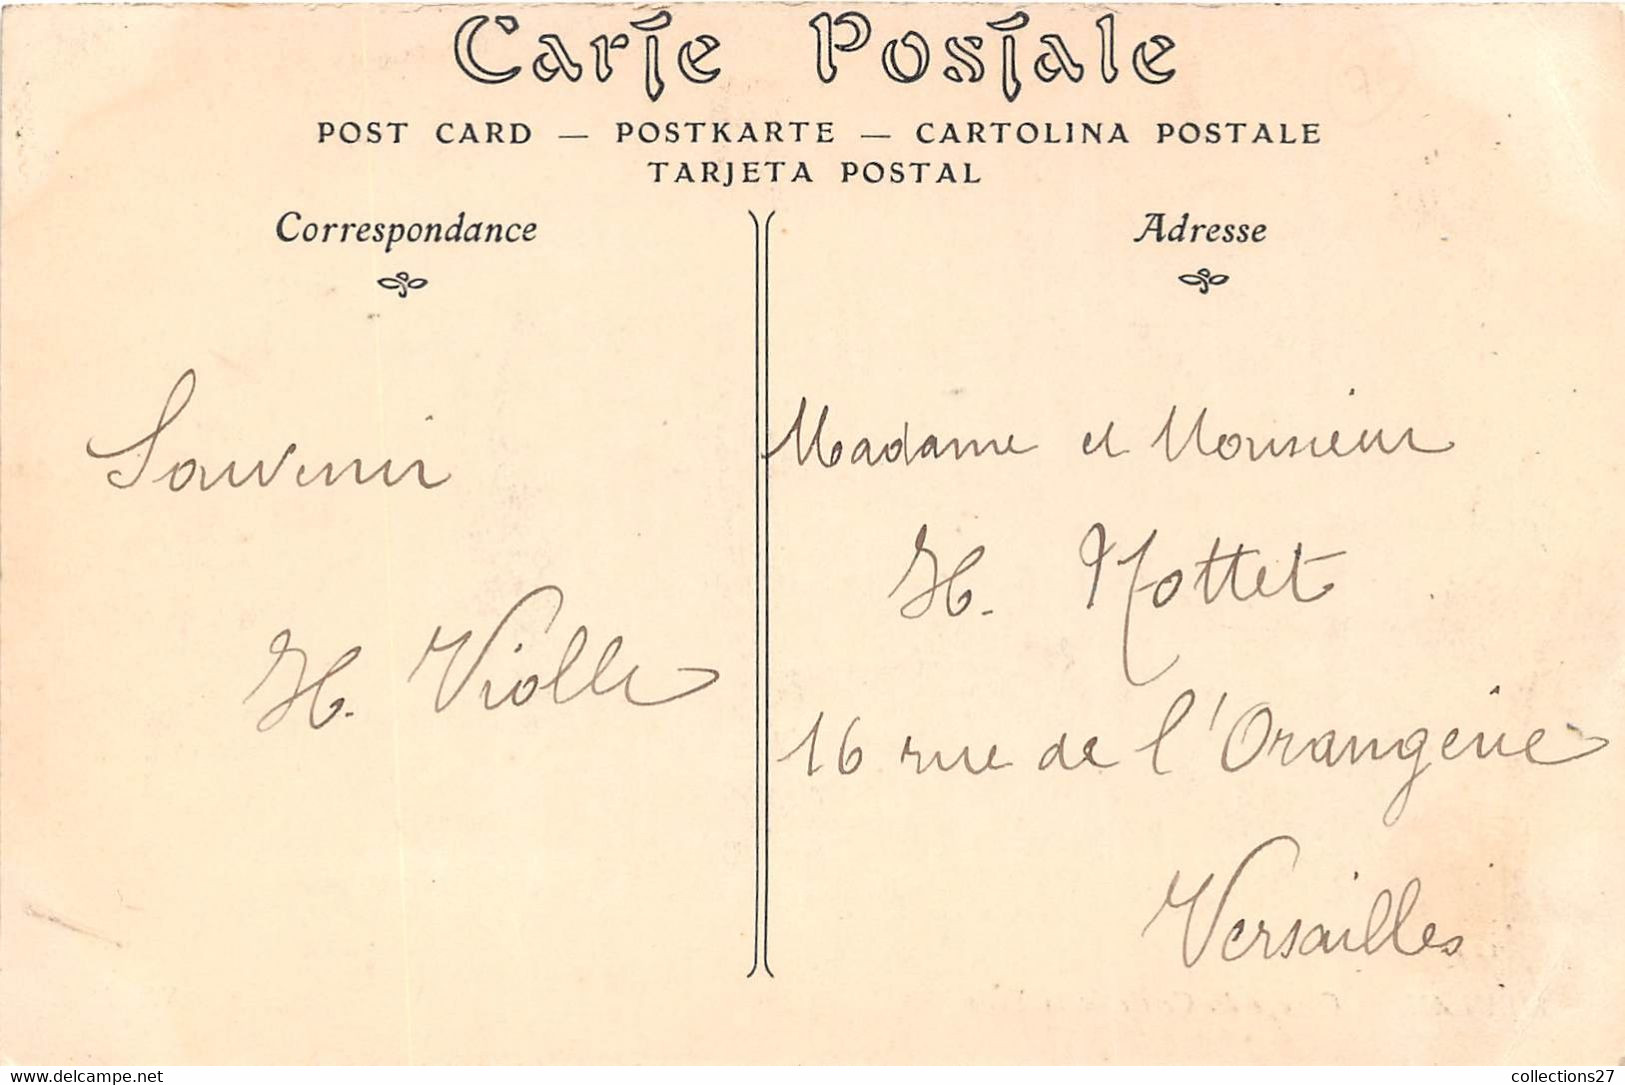 Carte Postale
POST CARD — POSTKARTE — CARTOLINA POSTALE
TARJETA POSTAL
Correspondance
Souvenir
H. Violle
Adresse
Madame et Monsieur
H. Nottet
16 rue de l'Orangerie
Versailles
https://www.delcampe.net
collections27